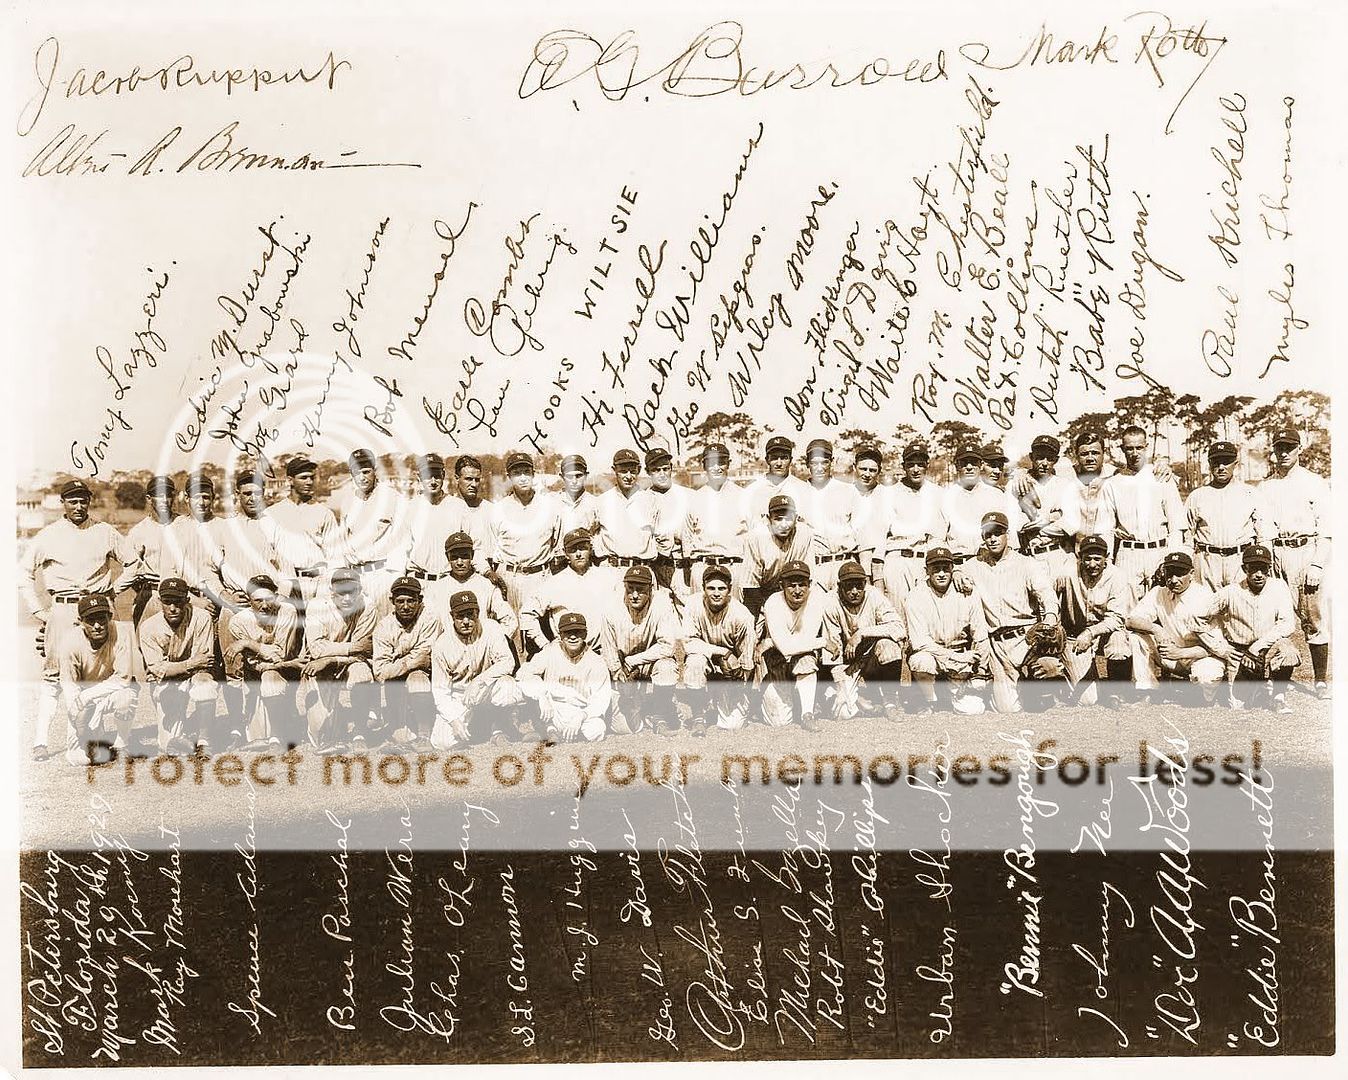 Jacob Ruppert
R. Brennan
E. G. Barrow
Mark Roth
Tony Lazzeri.
Cedric M. Durst.
John Grabowski
Joe Giard
Henry Johnson
Bob Meusel
Earle Combs
Lou Gehrig.
HOOKS WILTSIE
Hi Ferrell
Back Williams
Geo W Pipgras.
Wilcy Moore.
Don
Virgil L. Davis
Waite C Hoyt.
Roy. M. Chesterfield.
Walter E. Beall
Pat. Collins
"Dutch" Ruether
"Babe" Ruth
Joe Dugan.
Paul Krichell
Myles Thomas
photobucket
Protect more of your memories for less!
St Petersburg
Florida
March
Mark Koenig
Ray Morehart
Spence Adams
Ben Paschal
Julian Wera
Chas. O'Leary
S.L. Cannon
M. J. Huggins
Geo. W. Davis
Arthur Fletcher
Michael Gazella
Robt Shawkey
"Eddie" Phillips
Urban Shocker
"Bennie" Bengough
Johnny Nee
"Doc" Woods
"Eddie" Bennett